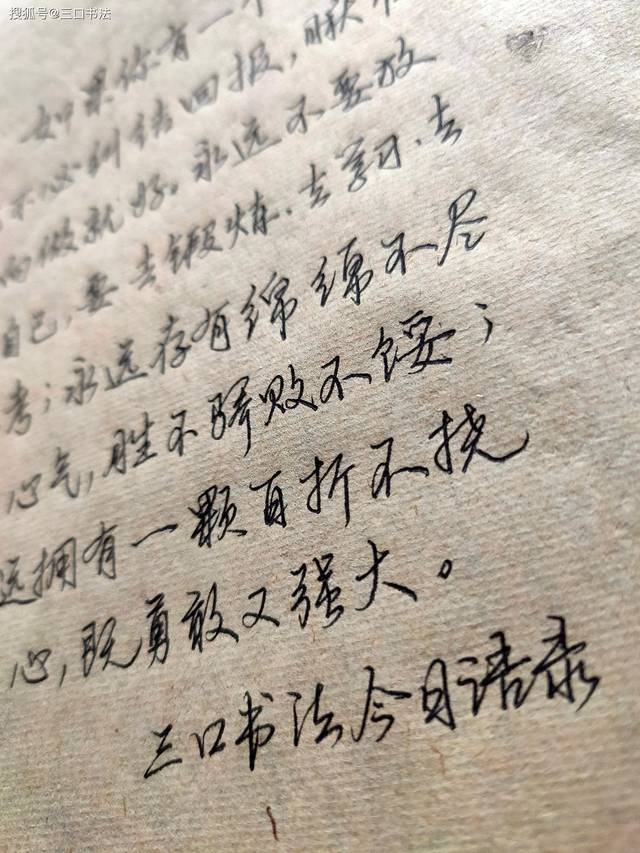 搜狐号@三口书法
如果你有一个
不必纠结回报,
而做就好。永远不要放
自己,要去锻炼、去学习、去
考;永远存有绵绵不尽
心气,胜不骄败不馁;
远拥有一颗百折不挠
心,既勇敢又强大。
三口书法今日语录